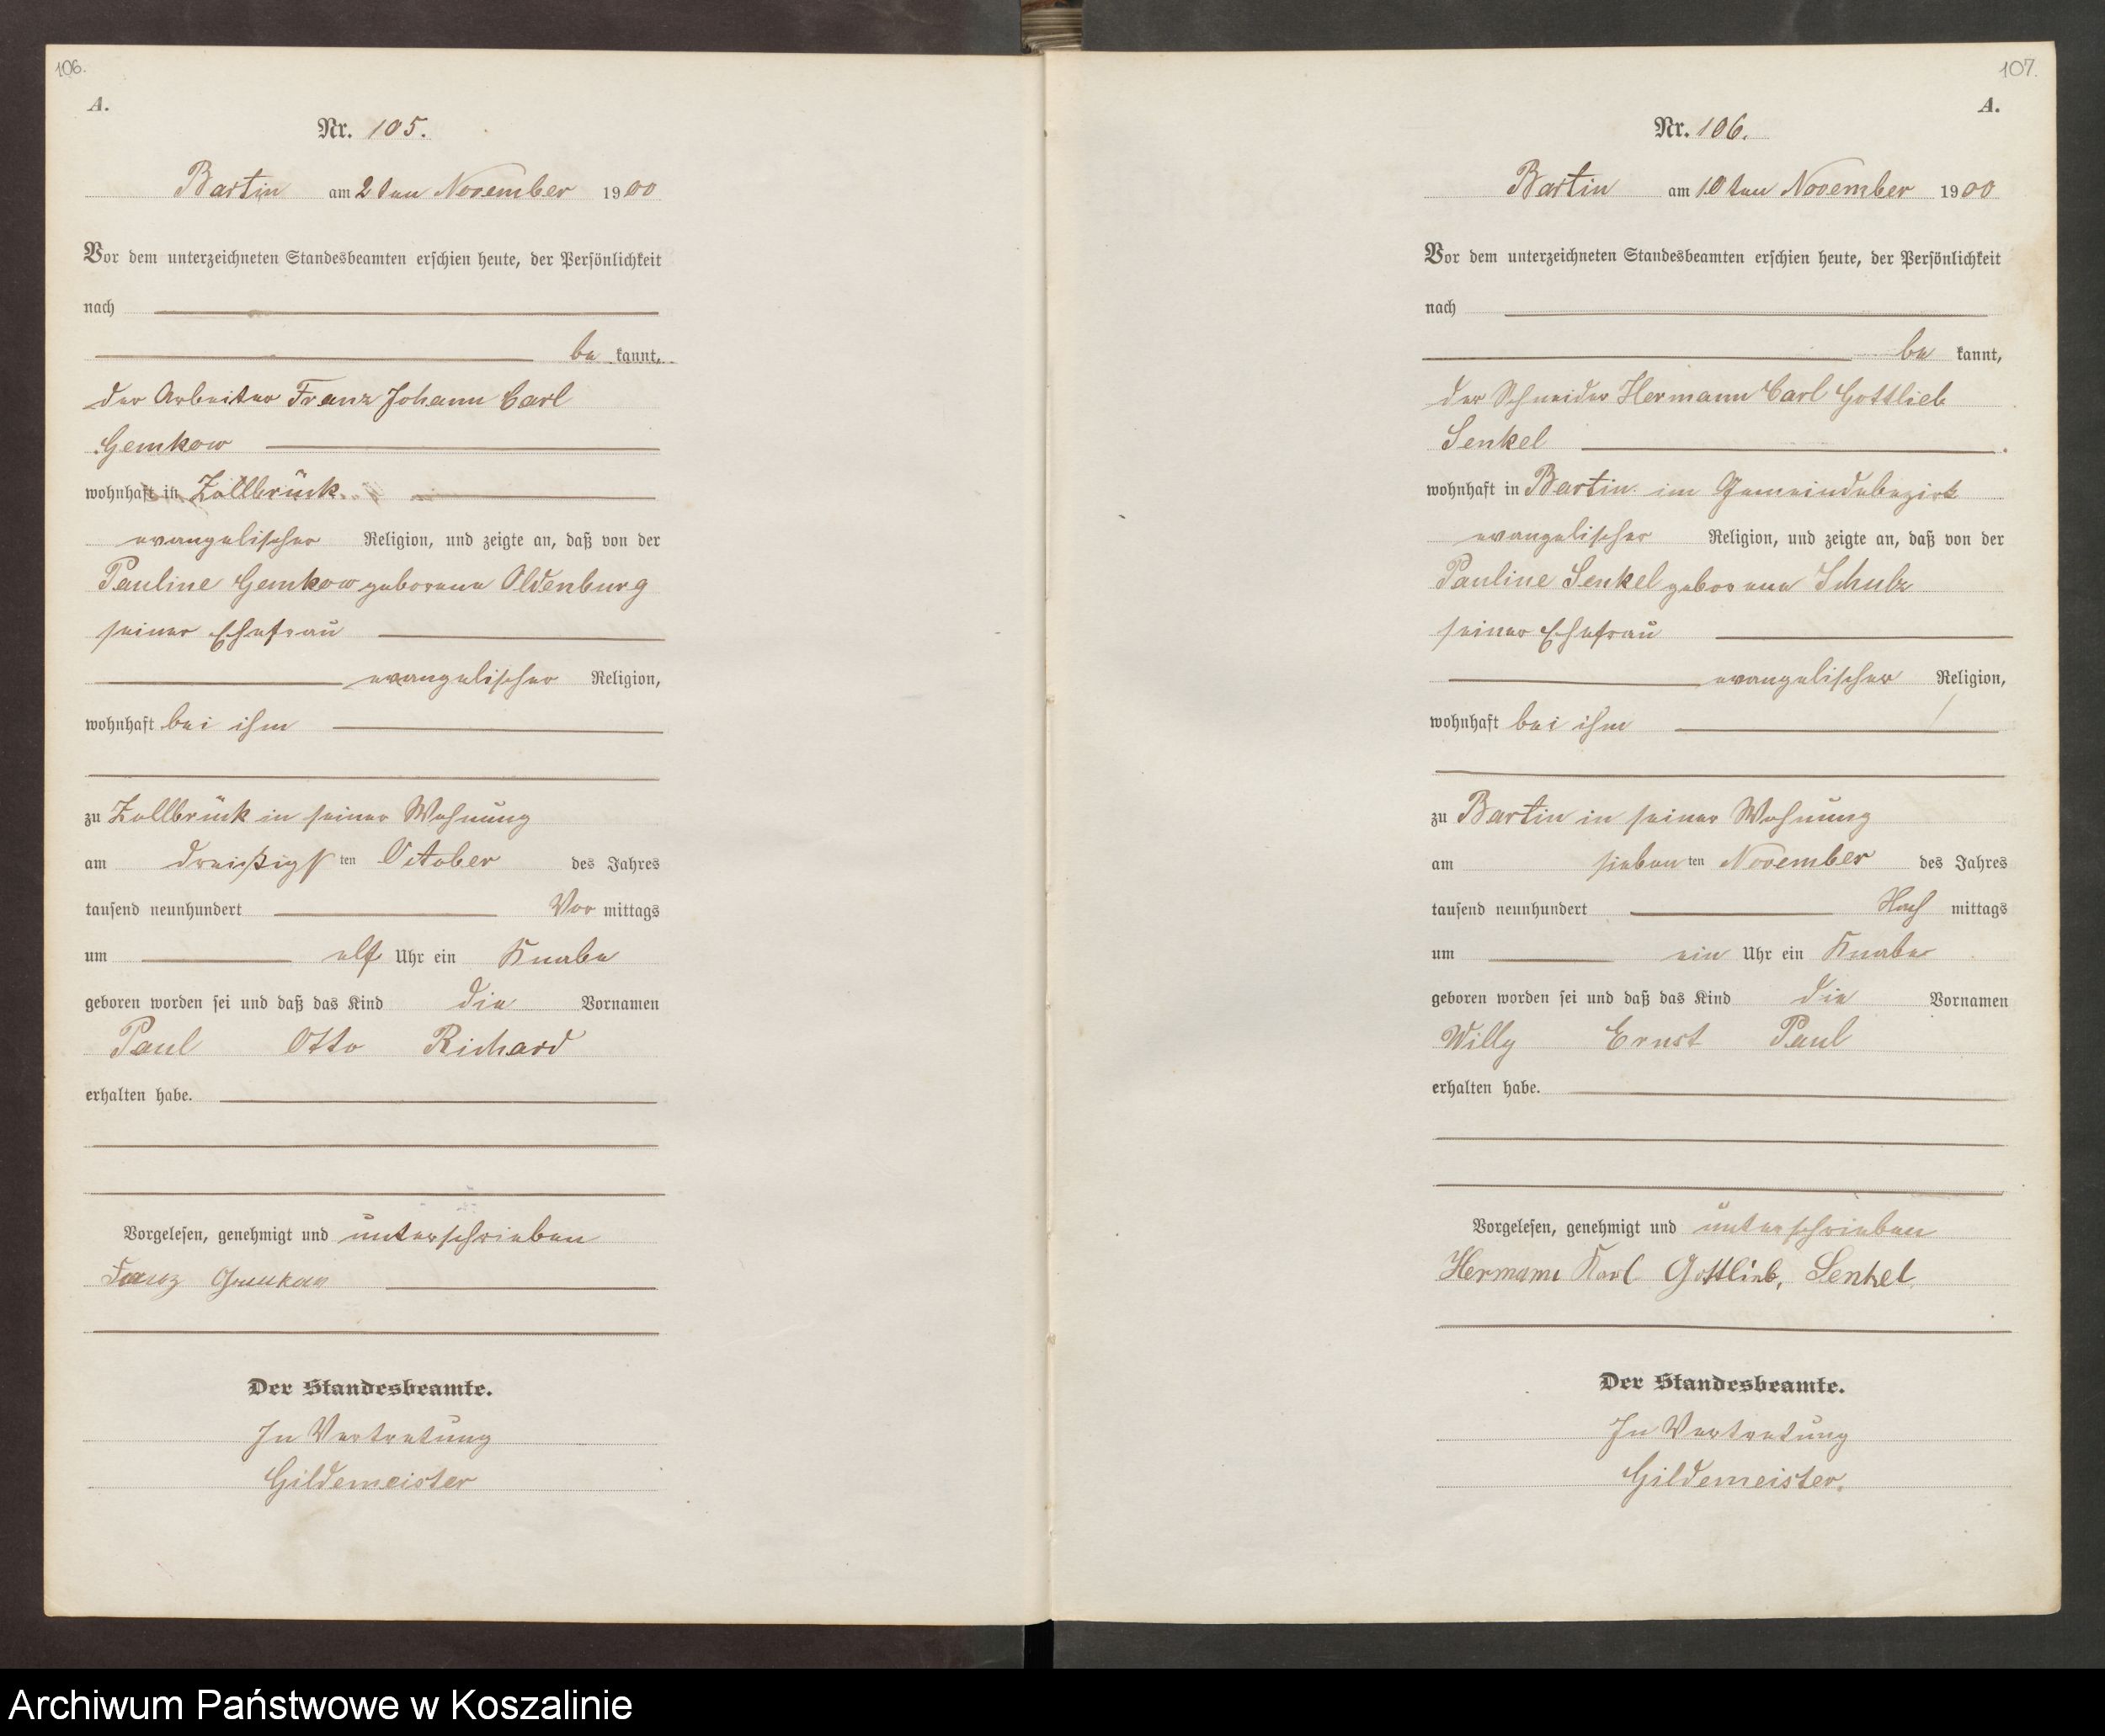 106.
A.
Nr. 105.
Bartin am 2ten November 1900
Vor dem unterzeichneten Standesbeamten erschien heute, der Persönlichkeit
nach
be kannt,
der Arbeiter Franz Johann Carl
Gemkow
wohnhaft in Zollbrück
evangelischer Religion, und zeigte an, daß von der
Pauline Gemkow geborene Oldenburg
seiner Ehefrau
evangelischer Religion,
wohnhaft bei ihm
zu Zollbrück in seiner Wohnung
am dreißigsten October des Jahres
tausend neunhundert Vor mittags
um elf Uhr ein Knabe
geboren worden sei und daß das Kind die Vornamen
Paul Otto Richard
erhalten habe.
Vorgelesen, genehmigt und unterschrieben
Franz Gemkow
Der Standesbeamte.
In Vertretung
Gildemeister
107.
A.
Nr. 106.
Bartin am 10ten November 1900
Vor dem unterzeichneten Standesbeamten erschien heute, der Persönlichkeit
nach
be kannt,
der Schneider Hermann Carl Gottlieb
Senkel
wohnhaft in Bartin im Gemeindebezirk
evangelischer Religion, und zeigte an, daß von der
Pauline Senkel geborene Schulz
seiner Ehefrau
evangelischer Religion,
wohnhaft bei ihm
zu Bartin in seiner Wohnung
am siebenten November des Jahres
tausend neunhundert Nach mittags
um ein Uhr ein Knabe
geboren worden sei und daß das Kind die Vornamen
Willy Ernst Paul
erhalten habe.
Vorgelesen, genehmigt und unterschrieben
Hermann Karl Gottlieb, Senkel
Der Standesbeamte.
In Vertretung
Gildemeister.
Archiwum Państwowe w Koszalinie